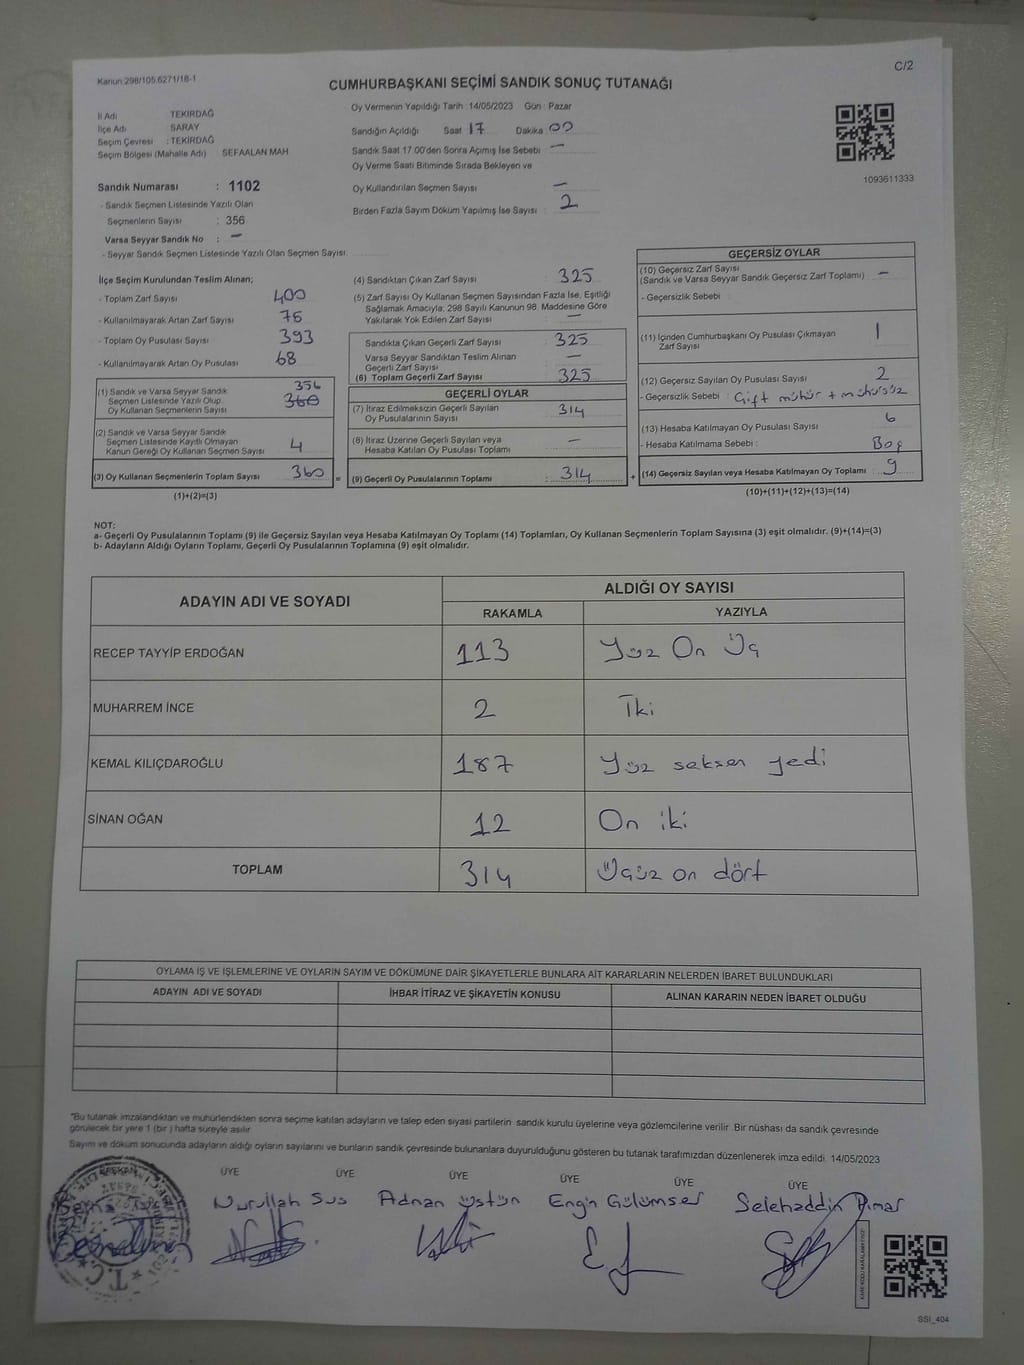 Kanun:298/105.6271/18-1
C/2
CUMHURBAŞKANI SEÇİMİ SANDIK SONUÇ TUTANAĞI
İl Adı TEKİRDAĞ
İlçe Adı SARAY
Seçim Çevresi : TEKİRDAĞ
Seçim Bölgesi (Mahalle Adı) SEFAALAN MAH
Sandık Numarası : 1102
- Sandık Seçmen Listesinde Yazılı Olan
Seçmenlerin Sayısı : 356
Varsa Seyyar Sandık No : —
- Seyyar Sandık Seçmen Listesinde Yazılı Olan Seçmen Sayısı:
Oy Vermenin Yapıldığı Tarih : 14/05/2023 Gün : Pazar
Sandığın Açıldığı Saat 17 Dakika 00
Sandık Saat 17:00'den Sonra Açımış İse Sebebi : —
Oy Verme Saati Bitiminde Sırada Bekleyen ve
Oy Kullandırılan Seçmen Sayısı : —
Birden Fazla Sayım Döküm Yapılmış İse Sayısı : 2
1093611333
İlçe Seçim Kurulundan Teslim Alınan;
- Toplam Zarf Sayısı 400
- Kullanılmayarak Artan Zarf Sayısı 75
- Toplam Oy Pusulası Sayısı 393
- Kullanılmayarak Artan Oy Pusulası 68
(1) Sandık ve Varsa Seyyar Sandık
Seçmen Listesinde Yazılı Olup
Oy Kullanan Seçmenlerin Sayısı 356 360
(2) Sandık ve Varsa Seyyar Sandık
Seçmen Listesinde Kayıtlı Olmayan
Kanun Gereği Oy Kullanan Seçmen Sayısı 4
(3) Oy Kullanan Seçmenlerin Toplam Sayısı 360
(1)+(2)=(3)
(4) Sandıktan Çıkan Zarf Sayısı : 325
(5) Zarf Sayısı Oy Kullanan Seçmen Sayısından Fazla İse, Eşitliği
Sağlamak Amacıyla; 298 Sayılı Kanunun 98. Maddesine Göre
Yakılarak Yok Edilen Zarf Sayısı : —
Sandıkta Çıkan Geçerli Zarf Sayısı : 325
Varsa Seyyar Sandıktan Teslim Alınan
Geçerli Zarf Sayısı : —
(6) Toplam Geçerli Zarf Sayısı : 325
GEÇERLİ OYLAR
(7) İtiraz Edilmeksizin Geçerli Sayılan
Oy Pusulalarının Sayısı : 314
(8) İtiraz Üzerine Geçerli Sayılan veya
Hesaba Katılan Oy Pusulası Toplamı : —
= (9) Geçerli Oy Pusulalarının Toplamı : 314 +
GEÇERSİZ OYLAR
(10) Geçersiz Zarf Sayısı
(Sandık ve Varsa Seyyar Sandık Geçersiz Zarf Toplamı) : —
- Geçersizlik Sebebi :
(11) İçinden Cumhurbaşkanı Oy Pusulası Çıkmayan
Zarf Sayısı : 1
(12) Geçersiz Sayılan Oy Pusulası Sayısı : 2
- Geçersizlik Sebebi : Çift mühür + mühürsüz
(13) Hesaba Katılmayan Oy Pusulası Sayısı : 6
- Hesaba Katılmama Sebebi : Boş
(14) Geçersiz Sayılan veya Hesaba Katılmayan Oy Toplamı : 9
(10)+(11)+(12)+(13)=(14)
NOT:
a- Geçerli Oy Pusulalarının Toplamı (9) ile Geçersiz Sayılan veya Hesaba Katılmayan Oy Toplamı (14) Toplamları, Oy Kullanan Seçmenlerin Toplam Sayısına (3) eşit olmalıdır. (9)+(14)=(3)
b- Adayların Aldığı Oyların Toplamı, Geçerli Oy Pusulalarının Toplamına (9) eşit olmalıdır.
ADAYIN ADI VE SOYADI
ALDIĞI OY SAYISI
RAKAMLA YAZIYLA
RECEP TAYYİP ERDOĞAN 113 Yüz On Üç
MUHARREM İNCE 2 İki
KEMAL KILIÇDAROĞLU 187 Yüz seksen yedi
SİNAN OĞAN 12 On iki
TOPLAM 314 Üçüz on dört
OYLAMA İŞ VE İŞLEMLERİNE VE OYLARIN SAYIM VE DÖKÜMÜNE DAİR ŞİKAYETLERLE BUNLARA AİT KARARLARIN NELERDEN İBARET BULUNDUKLARI
ADAYIN ADI VE SOYADI İHBAR İTİRAZ VE ŞİKAYETİN KONUSU ALINAN KARARIN NEDEN İBARET OLDUĞU
"Bu tutanak imzalandıktan ve mühürlendikten sonra seçime katılan adayların ve talep eden siyasi partilerin sandık kurulu üyelerine veya gözlemcilerine verilir. Bir nüshası da sandık çevresinde
görülecek bir yere 1 (bir ) hafta süreyle asılır.
Sayım ve döküm sonucunda adayların aldığı oyların sayılarını ve bunların sandık çevresinde bulunanlara duyurulduğunu gösteren bu tutanak tarafımızdan düzenlenerek imza edildi. 14/05/2023
BAŞKAN ÜYE ÜYE ÜYE ÜYE ÜYE ÜYE
Nurullah Sus Adnan Üstün Engin Gülümser Selehaddin Pınar
T.C
KARE KODU KARALAMAYINIZ
SSI_404